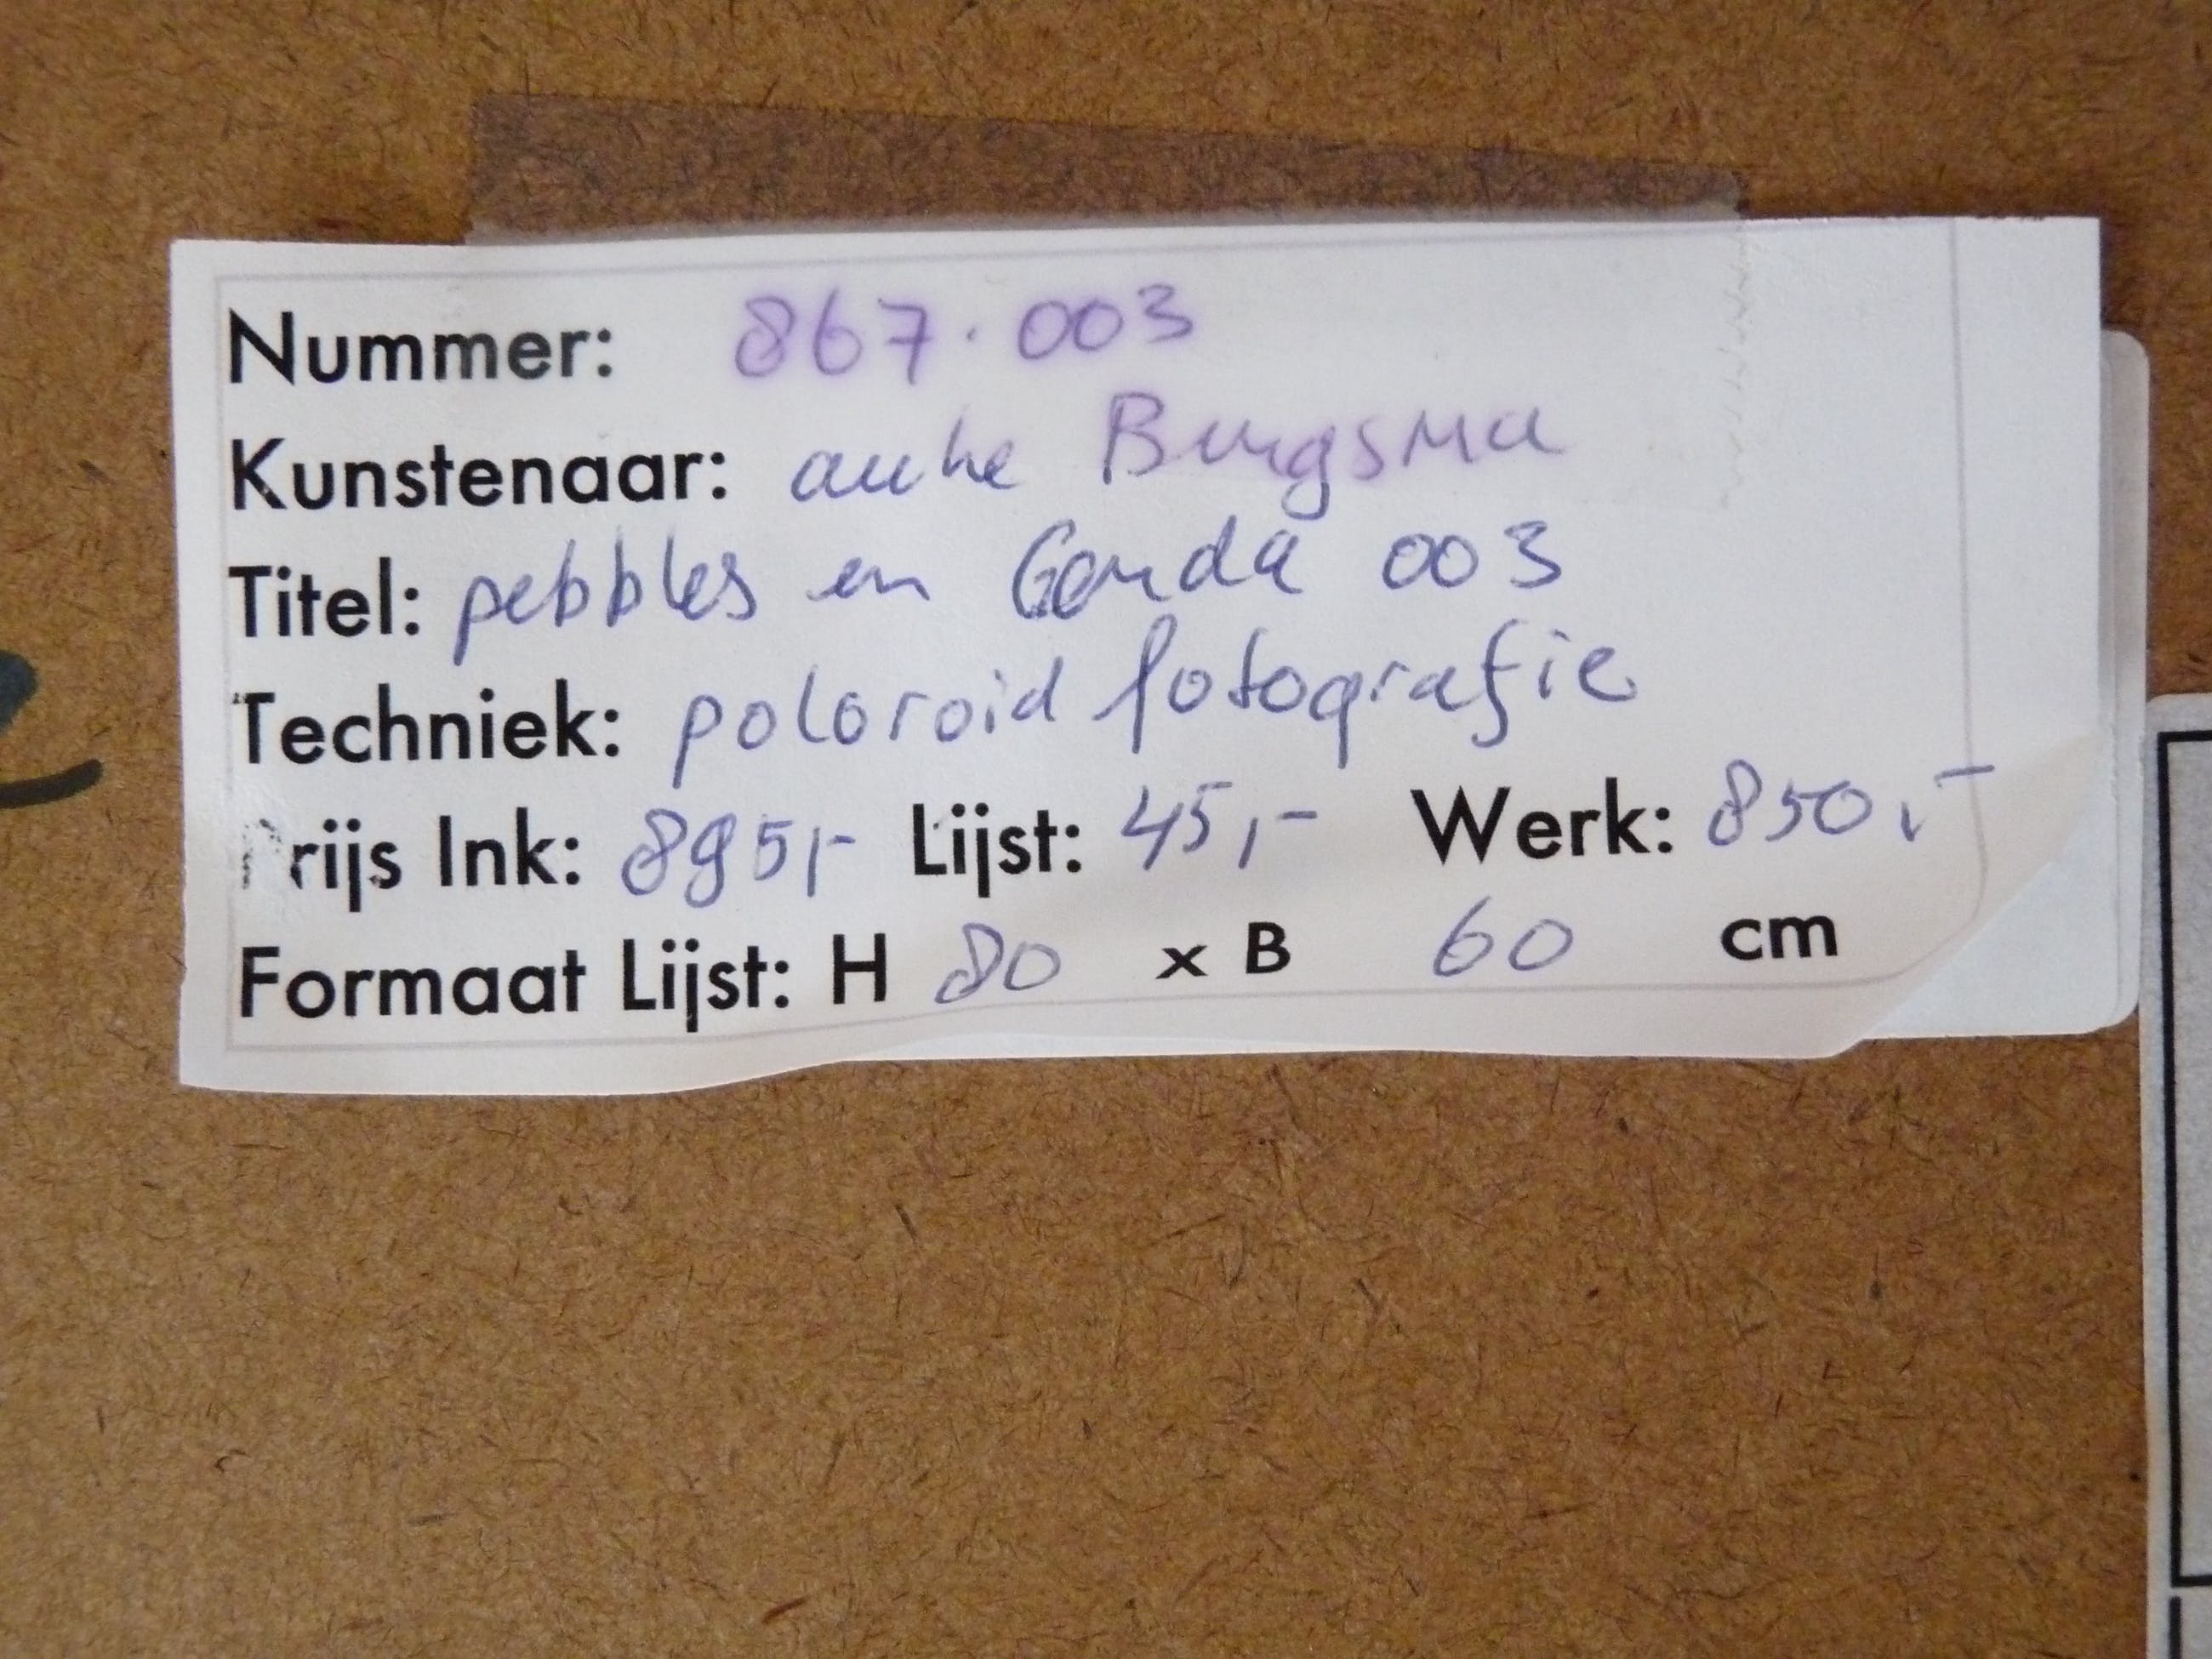 Nummer: 867.003
Kunstenaar: anke Bungsma
Titel: pebbles en Gouda 003
Techniek: poloroid fotografie
Prijs Ink: 895,- Lijst: 45,- Werk: 850,-
Formaat Lijst: H 80 x B 60 cm